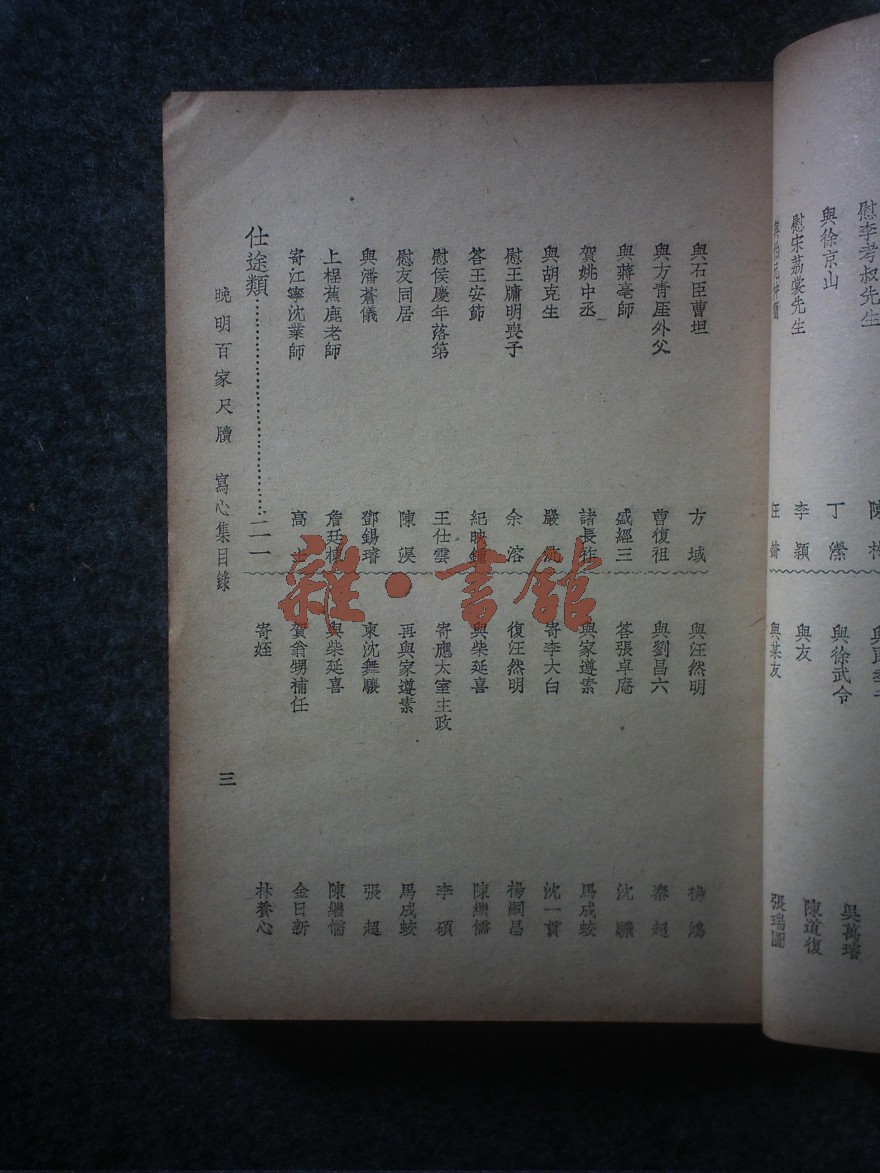 慰李考叔先生
與徐京山 丁灤
慰宋荔裳先生 李穎
與徐武令 陳道復
與友 張瑞圖
與某友
吳萬璿
與石臣曹坦 方域
與方青厓外父 曹復祖
與蔣亳師 盛經三
賀姚中丞 諸長祚
與胡克生 嚴沆
慰王牗明喪子 余溶
答王安節 紀映鍾
慰侯慶年落第 王仕雲
慰友同居 陳淏
與潘蒼儀 鄧錫璿
上桯蕉鹿老師 詹廷
寄江寧沈業師 高
仕途類 二一
與汪然明 楊鴻
與劉昌六 秦超
答張卓庵 沈
與家遵素 馬成蛟
寄李大白 沈一貫
復汪然明 楊嗣昌
與柴延喜 陳繼儒
寄應太室主政 李碩
再與家遵素 馬成蛟
東沈舞驤 張超
與柴延喜 陳繼儒
賀翁甥補任 金日新
寄姪 林養心
晚明百家尺牘 寫心集目錄 三
雜·書館